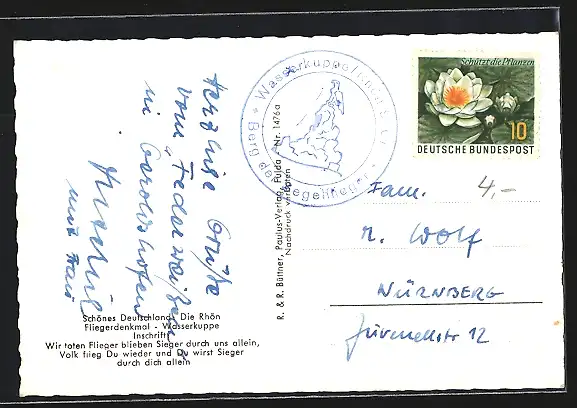 Herzliche Grüße
vom "Federweißen"
in Gerolzhofen
mit Frau
Schönes Deutschland: Die Rhön
Fliegerdenkmal - Wasserkuppe
Inschrift:
Wir toten Flieger blieben Sieger durch uns allein,
Volk flieg Du wieder und Du wirst Sieger
durch dich allein
R. & R. Büttner, Paulus-Verlag, Fulda Nr. 1476a
Nachdruck verboten
Wasserkuppe/Rhön
Berg der Segelflieger
Schützt die Pflanzen
10
DEUTSCHE BUNDESPOST
Fam. 4,-
R. Wolf
NÜRNBERG
12